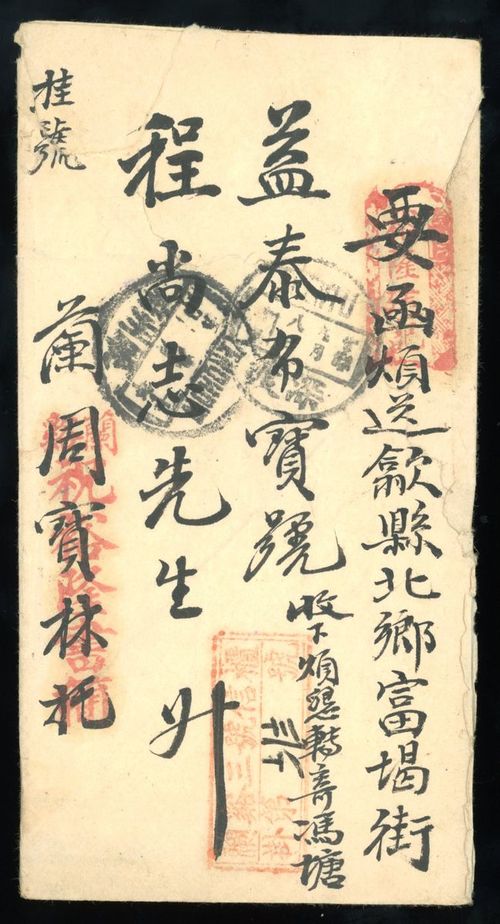 要函煩送歙縣北鄉富堨街
益泰布寶號
收下煩懇轉寄馮塘
程尚志先生升
蘭周寶林托
挂號